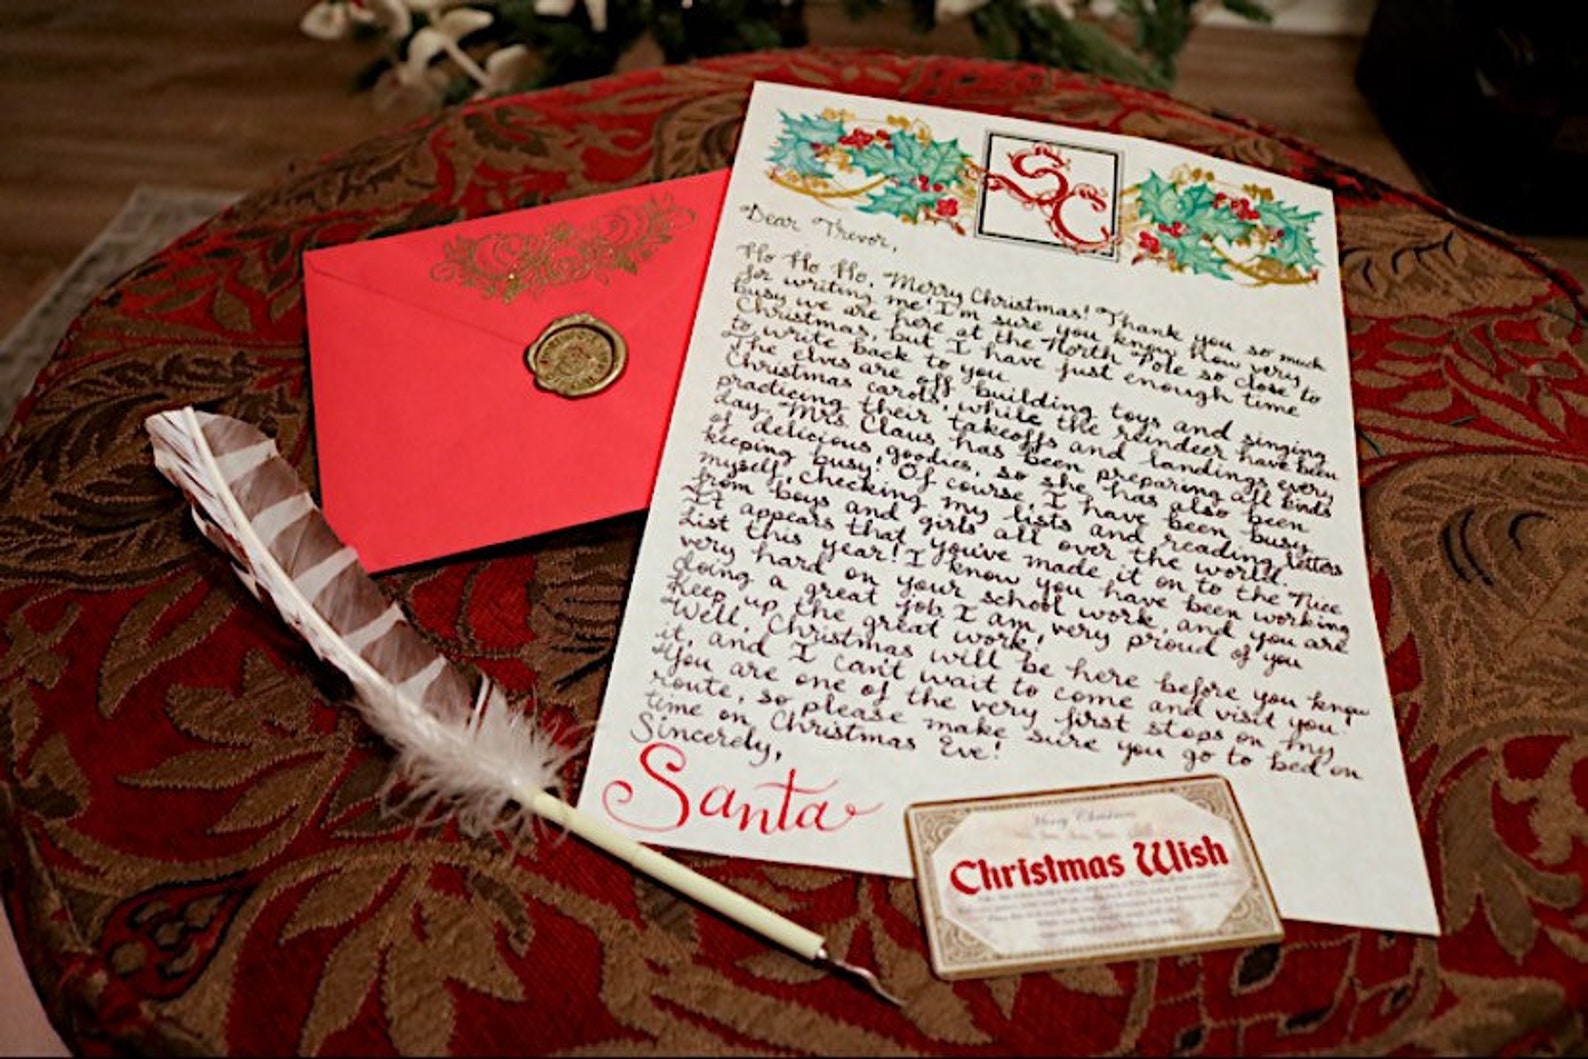 SC
Dear Trevor,
Ho Ho Ho, Merry Christmas! Thank you so much
for writing me! I'm sure you know how very
busy we are here at the North Pole so close to
Christmas, but I have just enough time
to write back to you.
The elves are off building toys and singing
Christmas carols, while the reindeer have been
practicing their takeoffs and landings every
day. Mrs. Claus has been preparing all kinds
of delicious goodies, so she has also been
keeping busy! Of course, I have been busy
myself, checking my lists and reading letters
from boys and girls all over the world.
It appears that you've made it on to the Nice
List this year! I know you have been working
very hard on your school work, and you are
doing a great job. I am very proud of you.
Keep up the great work!
Well, Christmas will be here before you know
it, and I can't wait to come and visit you.
You are one of the very first stops on my
route, so please make sure you go to bed on
time on Christmas Eve!
Sincerely,
Santa
Merry Christmas
Christmas Wish